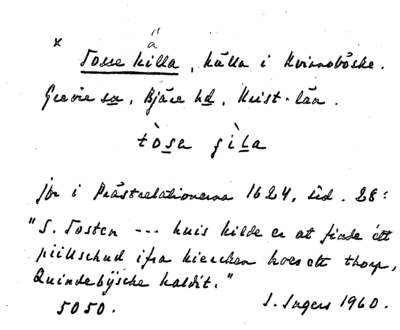 * Tosse killa, källa i Kvinnaböske.
ä
Grevie sn, Bjäre hd, Krist. län.
tòsa ɟìLa
jfr i Prästrelationerna 1624, sid. 28:
"S. Tosten --- huis kilde er at finde ett
piilschud ifra kiercken hoes ett thorp,
Quindebÿsche kaldit."
5050. I. Ingers 1960.